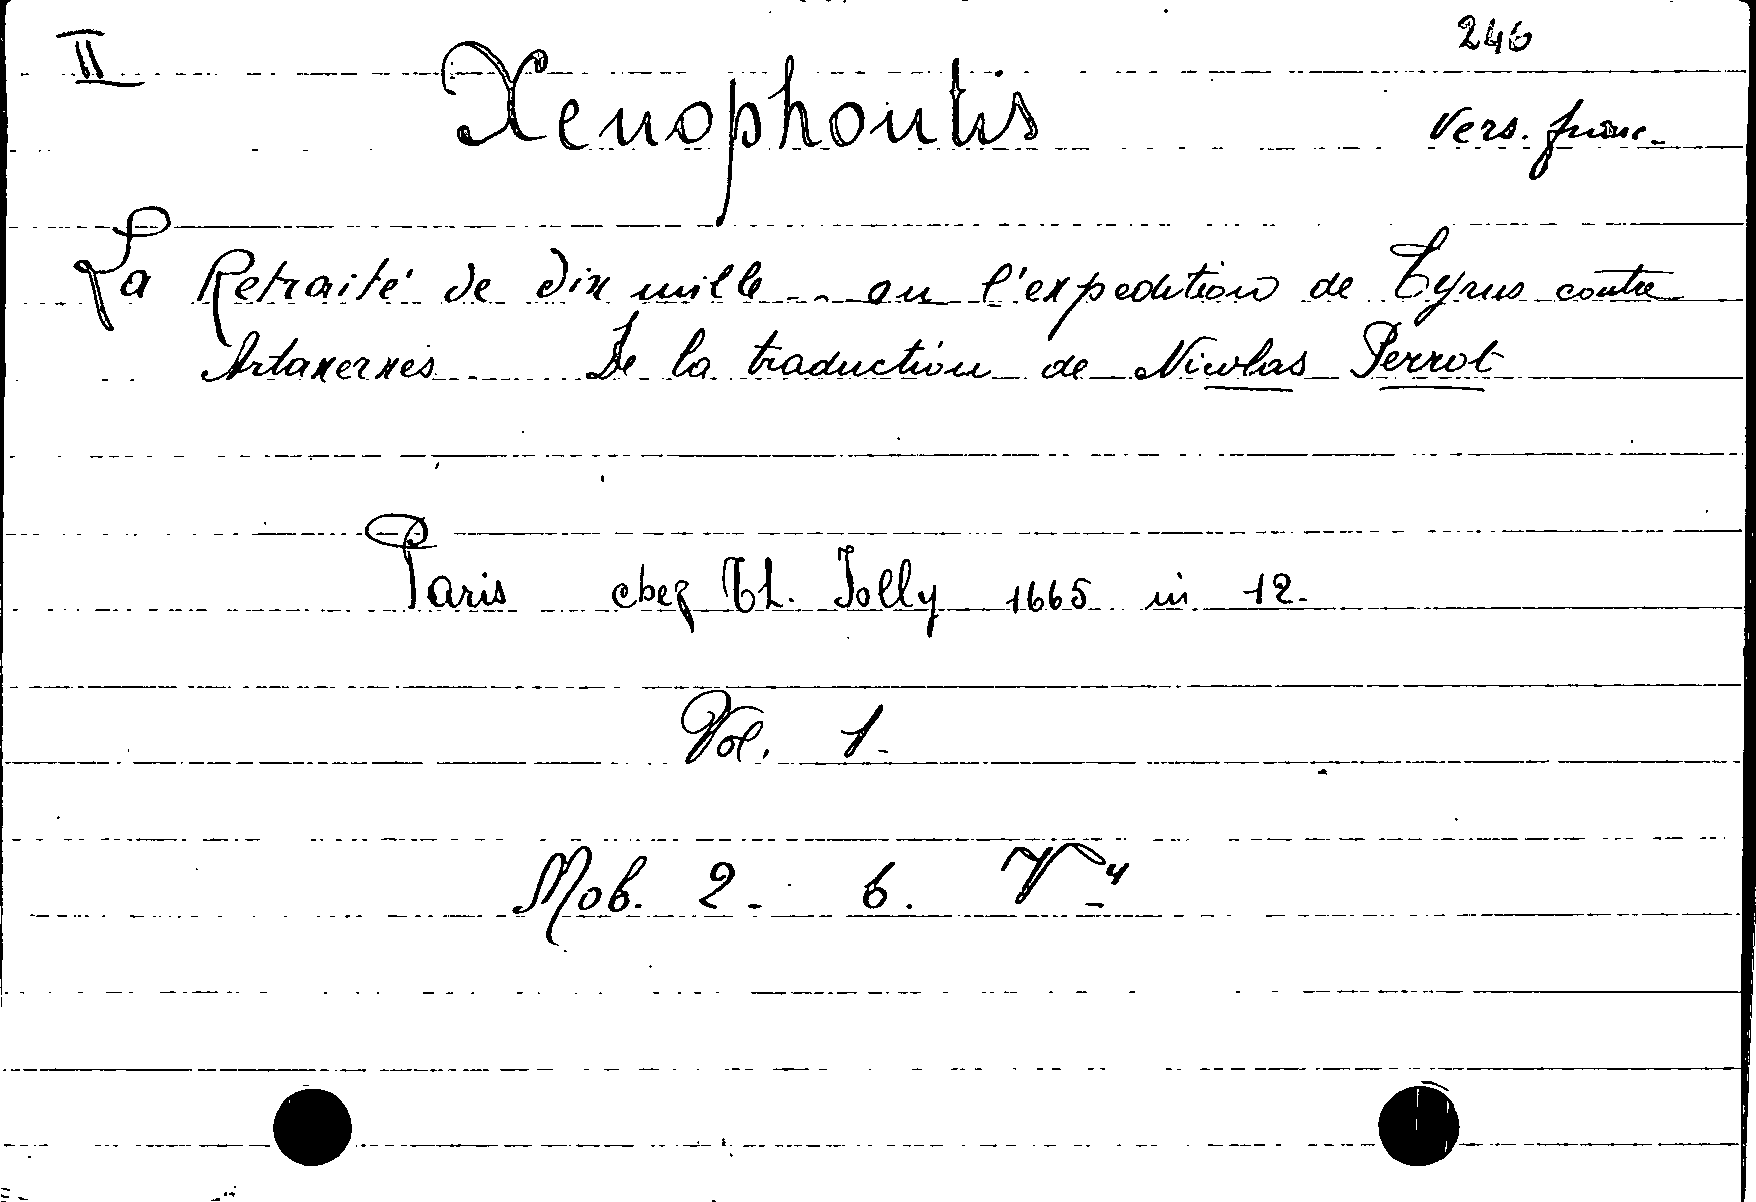 II
246
Xenophontis
Vers. franc.
La Retraité de dix mille .. ou l'expedition de Cyrus contre
Artaxerxes De la traduction de Nicolas Perrot
Paris chez Th. Jolly 1665 in 12.
Vol. 1.
Mob. 2. 6. V 4